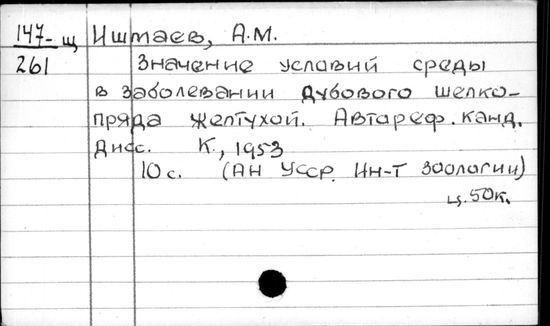 147-щ Иштаев, А.М.
261 Значение условий среды
в заболевании дубового шелко-
пряда желтухой. Автореф. канд.
дисс. К., 1953
10 с. (АН УССР. Ин-т зоологии)
ц. 50к.